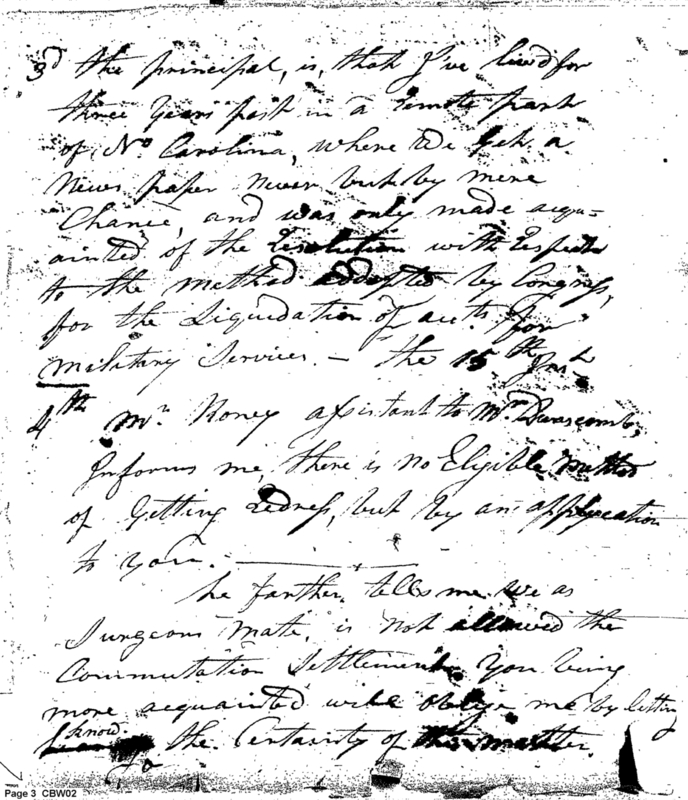 3d the principal, is, that I've lived for
three years past in a remote part
of No Carolina, where we get a
News paper never but by mere
Chance, and was only made acqu=
ainted of the Resolution with Respect
to the method addopted by Congress,
for the Liquidation of accts. for
military Services. — the 15th Inst
4th Mr. Roney assistant to Mr Dunscomb,
Informs me, there is no Eligible method
of Getting Redress, but by an application
to you. —
he farther tells me we as
Surgeons mate, is not allowed the
Commutation Settlement, You being
more acquainted will oblige me by letting
know
the Certainty of this matter.
Page 3 CBW02